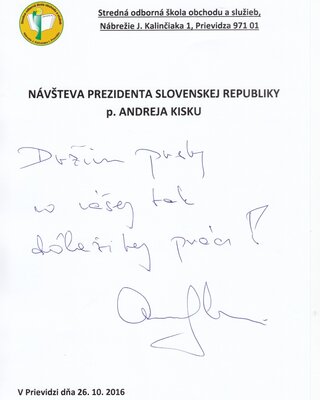 Stredná odborná škola obchodu a služieb,
Nábrežie J. Kalinčiaka 1, Prievidza 971 01
NÁVŠTEVA PREZIDENTA SLOVENSKEJ REPUBLIKY
p. ANDREJA KISKU
Držím prsty
vo vašej tak
dôležitej práci!
V Prievidzi dňa 26. 10. 2016